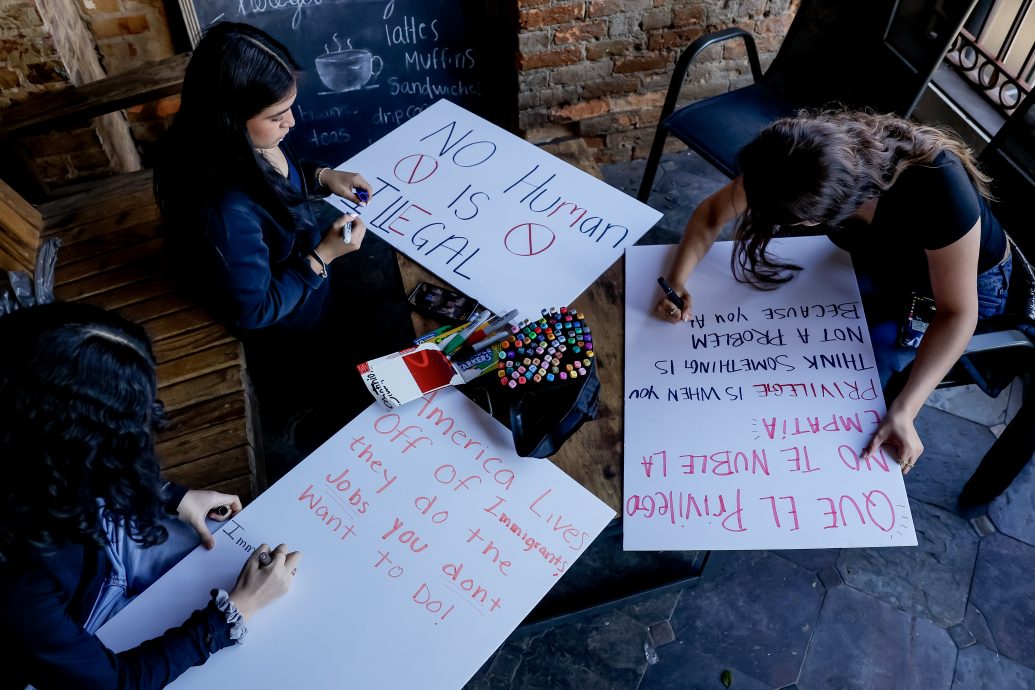 lattes
Muffins
Sandwiches
drip
teas
NO Human
IS
ILLEGAL
QUE EL Privilegio
NO TE NUBLE LA
EMPATÍA
PRIVILEGE IS WHEN YOU
THINK SOMETHING IS
NOT A PROBLEM
BECAUSE YOU A
America Lives
Off Of Immigrants,
they do the
Jobs you dont
Want to DO!
Imm